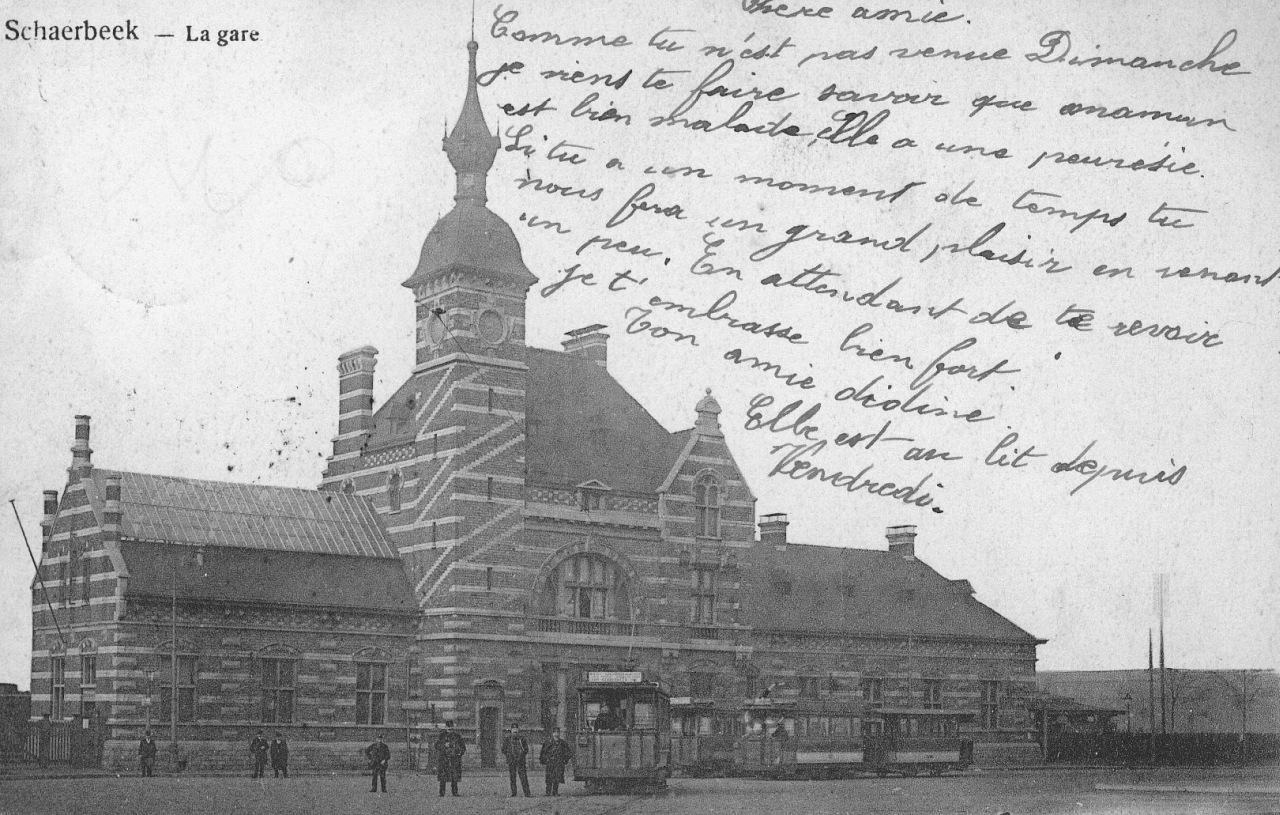 Schaerbeek — La gare
Chere amie.
Comme tu n'est pas venue Dimanche
je viens te faire savoir que maman
est bien malade, Elle a une peurésie.
Si tu a un moment de temps tu
nous fera un grand plaisir en venant
un peu. En attendant de te revoir
je t'embrasse bien fort.
Ton amie didine
Elle est au lit depuis
Vendredi.